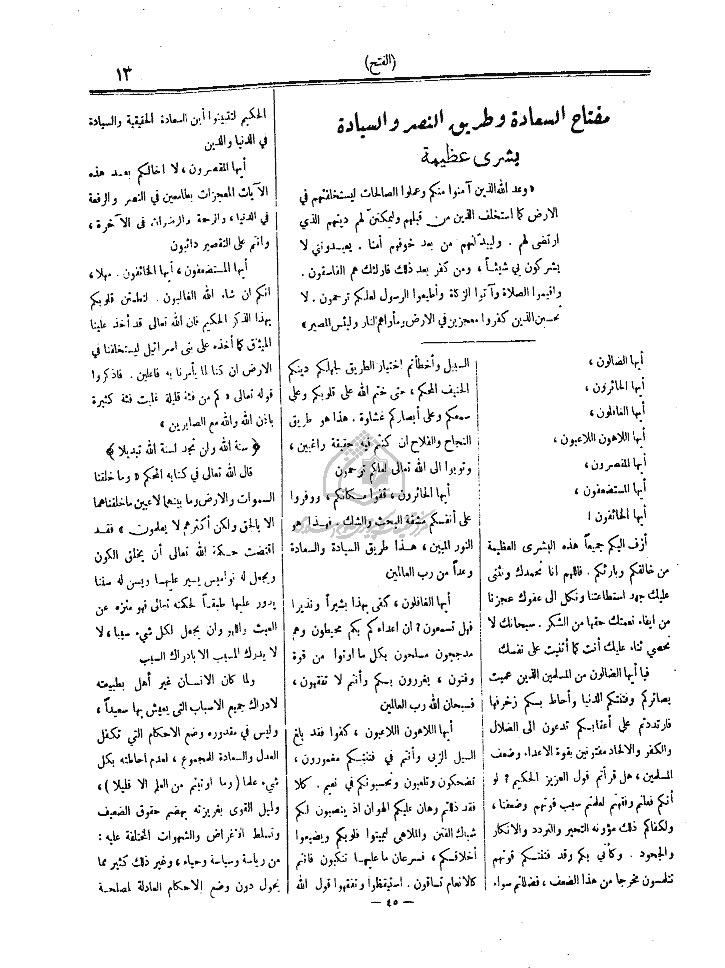 (الفتح)
١٣
مفتاح السعادة وطريق النصر والسيادة
بشرى عظيمة
«وعد الله الذين آمنوا منكم وعملوا الصالحات ليستخلفنهم في
الارض كما استخلف الذين من قبلهم وليمكنن لهم دينهم الذي
ارتضى لهم . وليبدلنهم من بعد خوفهم أمنا . يعبدونني لا
يشركون بي شيئاً ، ومن كفر بعد ذلك فأولئك هم الفاسقون .
واقيموا الصلاة وآتوا الزكاة وأطيعوا الرسول لعلكم ترحمون . لا
تحسبن الذين كفروا معجزين في الارض ومأواهم النار ولبئس المصير»
أيها الضالون ،
أيها الحائرون ،
أيها الغافلون ،
أيها اللاهون اللاعبون ،
أيها المقصرون ،
أيها المستضعفون ،
أيها الخائفون !
أزف اليكم جميعاً هذه البشرى العظيمة
من خالقكم وبارئكم . فاللهم انا نحمدك ونثنى
عليك جهد استطاعتنا ونكل الى عفوك عجزنا
من ايفاء نعمتك حقها من الشكر . سبحانك لا
نحصي ثناء عليك أنت كما أثنيت على نفسك
فيا أيها الضالون من المسلمين الذين عميت
بصائركم وفتنتكم الدنيا وأحاط بكم زخرفها
فارتددتم على أعقابكم تدعون الى الضلال
والكفر والالحاد مفتونين بقوة الاعداء وضعف
المسلمين ، هل قرأتم قول العزيز الحكيم ? لو
أنكم فعلتم وفقهتم لعلمتم سبب قوتهم وضعفنا ،
ولكفاكم ذلك مؤونة التحير والتردد والانكار
والجحود . وكأني بكم وقد فتنتكم قوتهم
تتلمسون مخرجا من هذا الضعف ، فضللتم سواء
السبيل وأخطأتم اختيار الطريق لجهلكم دينكم
الحنيف المحكم ، حتى ختم الله على قلوبكم وعلى
سمعكم وعلى أبصاركم غشاوة . هذا هو طريق
النجاح والفلاح ان كنتم فيه حقيقة راغبين ،
وتوبوا الى الله تعالى لعلكم ترحمون
أيها الحائرون ، قفوا مكانكم ، ووفروا
على أنفسكم مشقة البحث والشك . فهذا هو
النور المبين ، هذا طريق السيادة والسعادة
وعداً من رب العالمين
أيها الغافلون ، كفى بهذا بشيراً ونذيرا
فهل تسمعون ? ان اعداءكم بكم محيطون وهم
مدججون مسلحون بكل ما اوتوا من قوة
وفنون ، يغررون بكم وأنتم لا تفقهون ،
فسبحان الله رب العالمين
أيها اللاهون اللاعبون ، كفوا فقد بلغ
السيل الزبى وأنتم في فتنتكم مغمورون ،
تضحكون وتلعبون وتحسبونكم في نعيم . كلا
فقد ذللتم وهان عليكم الهوان اذ ينصبون لكم
شباك الفتن والملاهى ليميتوا قلوبكم ويضيعوا
أخلاقكم ، فسرعان ما عليها تنكبون فانتم
كالانعام تساقون . استيقظوا وتفقهوا قول الله
الحكيم لتقينوا أين السعادة الحقيقية والسيادة
في الدنيا والدين
أيها المقصرون ، لا اخالكم بعد هذه
الآيات المعجزات بطامعين في النصر والرفعة
في الدنيا ، والرحمة والرضوان فى الآخرة ،
وانتم على التقصير دائبون
أيها المستضعفون ، أيها الخائفون . مهلا ،
انكم ان شاء الله الغالبون . لتطمئن قلوبكم
بهذا الذكر الحكيم فان الله تعالى قد أخذ علينا
الميثاق كما أخذه على بنى اسرائيل ليستخلفنا في
الارض ان كنا لما يأمرنا به فاعلين . فاذكروا
قوله تعالى « كم من فئة قليلة غلبت فئة كثيرة
باذن الله والله مع الصابرين »
﴿ سنة الله ولن تجد لسنة الله تبديلا ﴾
قال الله تعالى في كتابه المحكم « وما خلقنا
السموات والارض وما بينهما لاعبين ما خلقناهما
الا بالحق ولكن أكثرهم لا يعلمون » فقد
اقتضت حكمة الله تعالى أن يخلق الكون
ويجعل له نواميس يسير عليها ويسن له سننا
يدور عليها طبقاً لحكمته تعالى فهو منزه عن
العبث واللهو وان يجعل لكل شيء سببا ، لا
لا يدرك المسبب الا بادراك السبب
ولما كان الانسان غير أهل بطبيعته
لادراك جميع الاسباب التى يعيش بها سعيداً ،
وليس في مقدوره وضع الاحكام التي تكفل
العدل والسعادة للمجموع ، لعدم احاطته بكل
شيء علما ( وما اوتيتم من العلم الا قليلا ) ،
ولميل القوى بغريزته بهضم حقوق الضعيف
وتسلط الاغراض والشهوات المختلفة عليه :
من رياسة وسياسة وحياء ، وغير ذلك كثير مما
يحول دون وضع الاحكام العادلة لمصلحة
— ٤٥ —